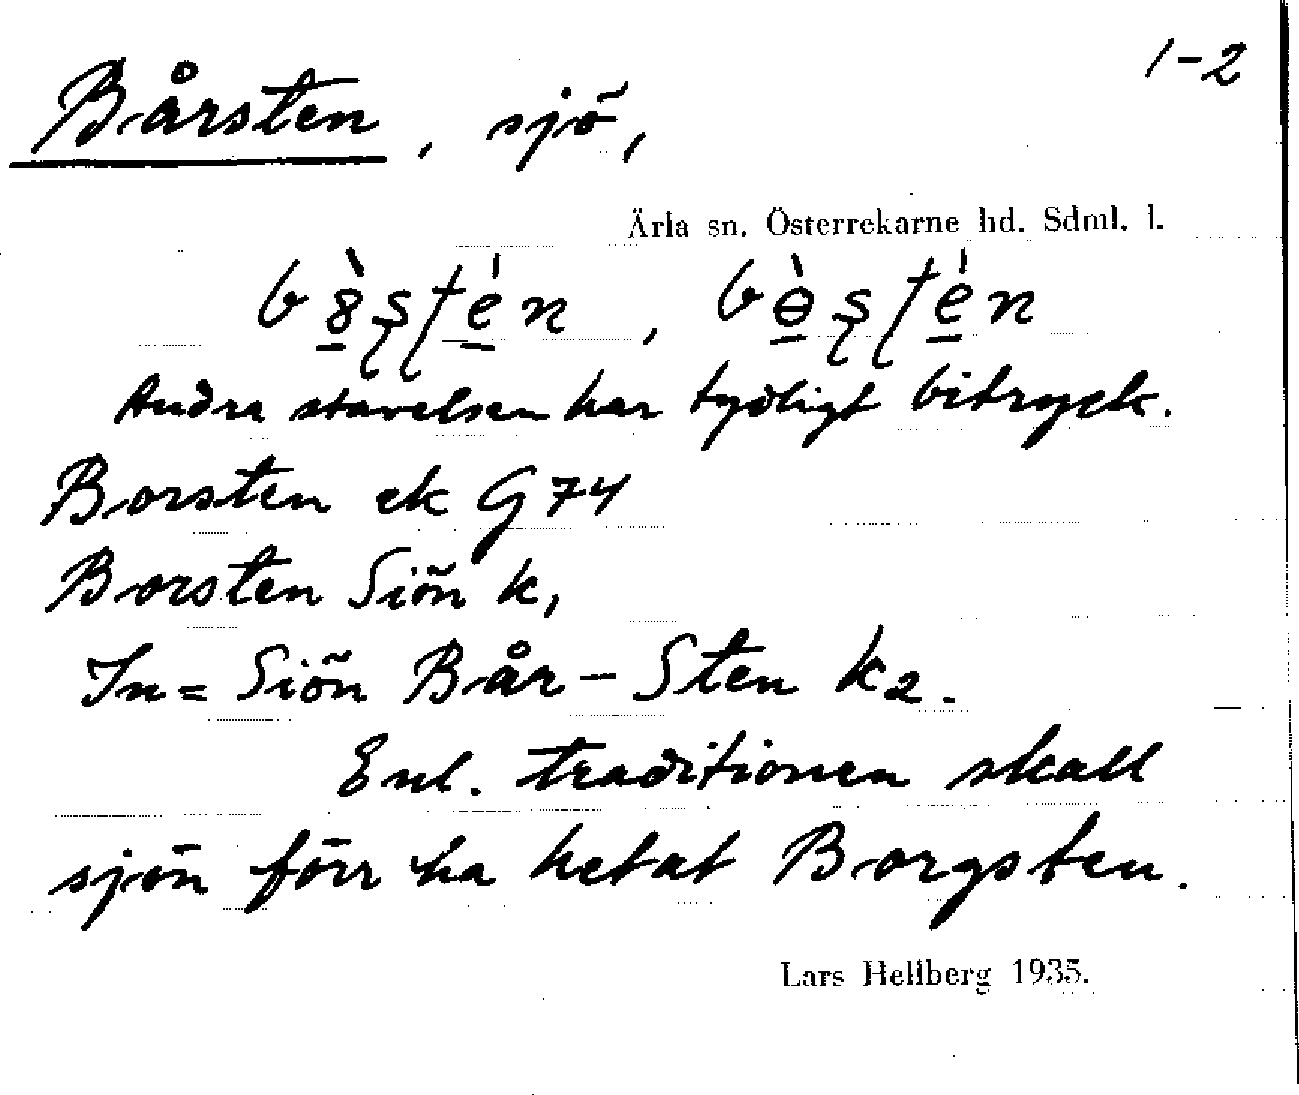 1-2
Bårsten, sjö,
Ärla sn. Österrekarne hd. Sdml. l.
Andra stavelsen har tydligt bitryck.
Borsten ek G 74
Borsten Siön k,
In= Siön Bår-Sten k2.
Enl. traditionen skall
sjön förr ha hetat Borgsten.
Lars Hellberg 1935.